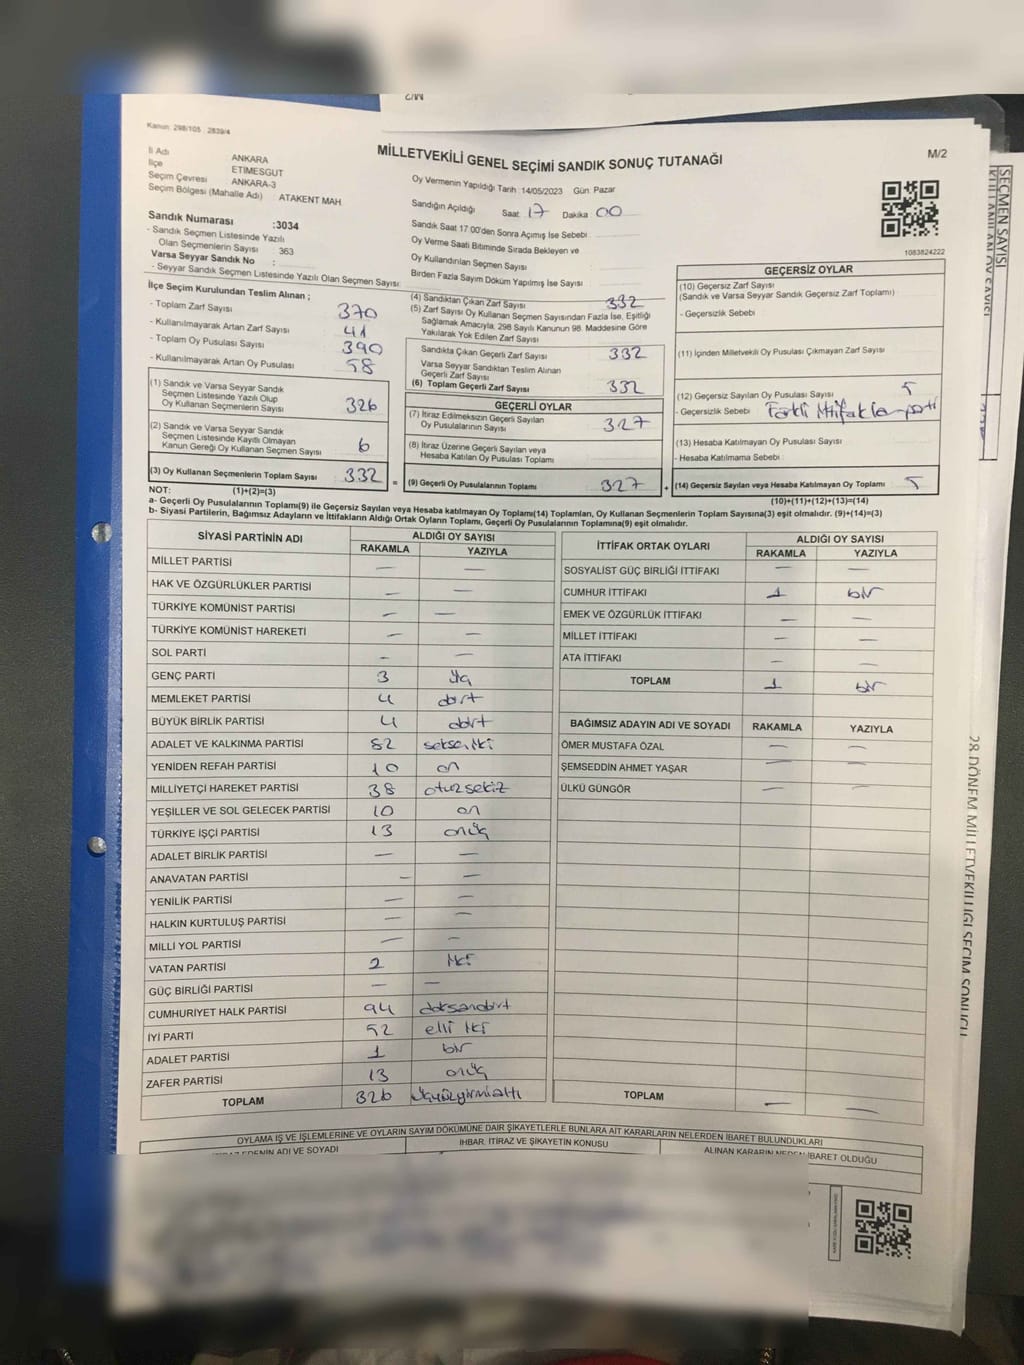 Kanun: 298/105 , 2839/4
MİLLETVEKİLİ GENEL SEÇİMİ SANDIK SONUÇ TUTANAĞI
M/2
İl Adı ANKARA
İlçe ETİMESGUT
Seçim Çevresi ANKARA-3
Seçim Bölgesi (Mahalle Adı) : ATAKENT MAH
Sandık Numarası :3034
- Sandık Seçmen Listesinde Yazılı
Olan Seçmenlerin Sayısı : 363
Varsa Seyyar Sandık No :
- Seyyar Sandık Seçmen Listesinde Yazılı Olan Seçmen Sayısı:
Oy Vermenin Yapıldığı Tarih :14/05/2023 Gün: Pazar
Sandığın Açıldığı Saat 17 Dakika 00
Sandık Saat 17.00'den Sonra Açılmış İse Sebebi
Oy Verme Saati Bitiminde Sırada Bekleyen ve
Oy Kullandırılan Seçmen Sayısı
Birden Fazla Sayım Döküm Yapılmış İse Sayısı
1083824222
İlçe Seçim Kurulundan Teslim Alınan ;
- Toplam Zarf Sayısı 370
- Kullanılmayarak Artan Zarf Sayısı 41
- Toplam Oy Pusulası Sayısı 390
- Kullanılmayarak Artan Oy Pusulası 58
(1) Sandık ve Varsa Seyyar Sandık
Seçmen Listesinde Yazılı Olup
Oy Kullanan Seçmenlerin Sayısı 326
(2) Sandık ve Varsa Seyyar Sandık
Seçmen Listesinde Kayıtlı Olmayan
Kanun Gereği Oy Kullanan Seçmen Sayısı 6
(3) Oy Kullanan Seçmenlerin Toplam Sayısı 332 =
(4) Sandıktan Çıkan Zarf Sayısı 332
(5) Zarf Sayısı Oy Kullanan Seçmen Sayısından Fazla İse, Eşitliği
Sağlamak Amacıyla, 298 Sayılı Kanunun 98. Maddesine Göre
Yakılarak Yok Edilen Zarf Sayısı
Sandıkta Çıkan Geçerli Zarf Sayısı 332
Varsa Seyyar Sandıktan Teslim Alınan
Geçerli Zarf Sayısı
(6) Toplam Geçerli Zarf Sayısı 332
GEÇERLİ OYLAR
(7) İtiraz Edilmeksizin Geçerli Sayılan
Oy Pusulalarının Sayısı 327
(8) İtiraz Üzerine Geçerli Sayılan veya
Hesaba Katılan Oy Pusulası Toplamı
(9) Geçerli Oy Pusulalarının Toplamı 327 +
GEÇERSİZ OYLAR
(10) Geçersiz Zarf Sayısı
(Sandık ve Varsa Seyyar Sandık Geçersiz Zarf Toplamı)
- Geçersizlik Sebebi
(11) İçinden Milletvekili Oy Pusulası Çıkmayan Zarf Sayısı
(12) Geçersiz Sayılan Oy Pusulası Sayısı 5
- Geçersizlik Sebebi Farklı ittifakla-parti
(13) Hesaba Katılmayan Oy Pusulası Sayısı
- Hesaba Katılmama Sebebi
(14) Geçersiz Sayılan veya Hesaba Katılmayan Oy Toplamı 5
NOT: (1)+(2)=(3)
(10)+(11)+(12)+(13)=(14)
a- Geçerli Oy Pusulalarının Toplamı(9) ile Geçersiz Sayılan veya Hesaba katılmayan Oy Toplamı(14) Toplamları, Oy Kullanan Seçmenlerin Toplam Sayısına(3) eşit olmalıdır. (9)+(14)=(3)
b- Siyasi Partilerin, Bağımsız Adayların ve İttifakların Aldığı Ortak Oyların Toplamı, Geçerli Oy Pusulalarının Toplamına(9) eşit olmalıdır.
SİYASİ PARTİNİN ADI ALDIĞI OY SAYISI
RAKAMLA YAZIYLA
MİLLET PARTİSİ — —
HAK VE ÖZGÜRLÜKLER PARTİSİ — —
TÜRKİYE KOMÜNİST PARTİSİ — —
TÜRKİYE KOMÜNİST HAREKETİ — —
SOL PARTİ — —
GENÇ PARTİ 3 üç
MEMLEKET PARTİSİ 4 dört
BÜYÜK BİRLİK PARTİSİ 4 dört
ADALET VE KALKINMA PARTİSİ 82 seksen iki
YENİDEN REFAH PARTİSİ 10 on
MİLLİYETÇİ HAREKET PARTİSİ 38 otuzsekiz
YEŞİLLER VE SOL GELECEK PARTİSİ 10 on
TÜRKİYE İŞÇİ PARTİSİ 13 onüç
ADALET BİRLİK PARTİSİ — —
ANAVATAN PARTİSİ — —
YENİLİK PARTİSİ — —
HALKIN KURTULUŞ PARTİSİ — —
MİLLİ YOL PARTİSİ — —
VATAN PARTİSİ 2 iki
GÜÇ BİRLİĞİ PARTİSİ — —
CUMHURİYET HALK PARTİSİ 94 doksandört
İYİ PARTİ 52 elli iki
ADALET PARTİSİ 1 bir
ZAFER PARTİSİ 13 onüç
TOPLAM 326 üçyüzyirmialtı
İTTİFAK ORTAK OYLARI ALDIĞI OY SAYISI
RAKAMLA YAZIYLA
SOSYALİST GÜÇ BİRLİĞİ İTTİFAKI — —
CUMHUR İTTİFAKI 1 bir
EMEK VE ÖZGÜRLÜK İTTİFAKI — —
MİLLET İTTİFAKI — —
ATA İTTİFAKI — —
TOPLAM 1 bir
BAĞIMSIZ ADAYIN ADI VE SOYADI RAKAMLA YAZIYLA
ÖMER MUSTAFA ÖZAL — —
ŞEMSEDDİN AHMET YAŞAR — —
ÜLKÜ GÜNGÖR — —
TOPLAM — —
OYLAMA İŞ VE İŞLEMLERİNE VE OYLARIN SAYIM DÖKÜMÜNE DAİR ŞİKAYETLERLE BUNLARA AİT KARARLARIN NELERDEN İBARET BULUNDUKLARI
EDENİN ADI VE SOYADI İHBAR, İTİRAZ VE ŞİKAYETİN KONUSU ALINAN KARARIN NEDEN İBARET OLDUĞU
SEÇMEN SAYISI
KULLANILAN OY SAYISI
28.DÖNEM MİLLETVEKİLLİĞİ SEÇİM SONUCU